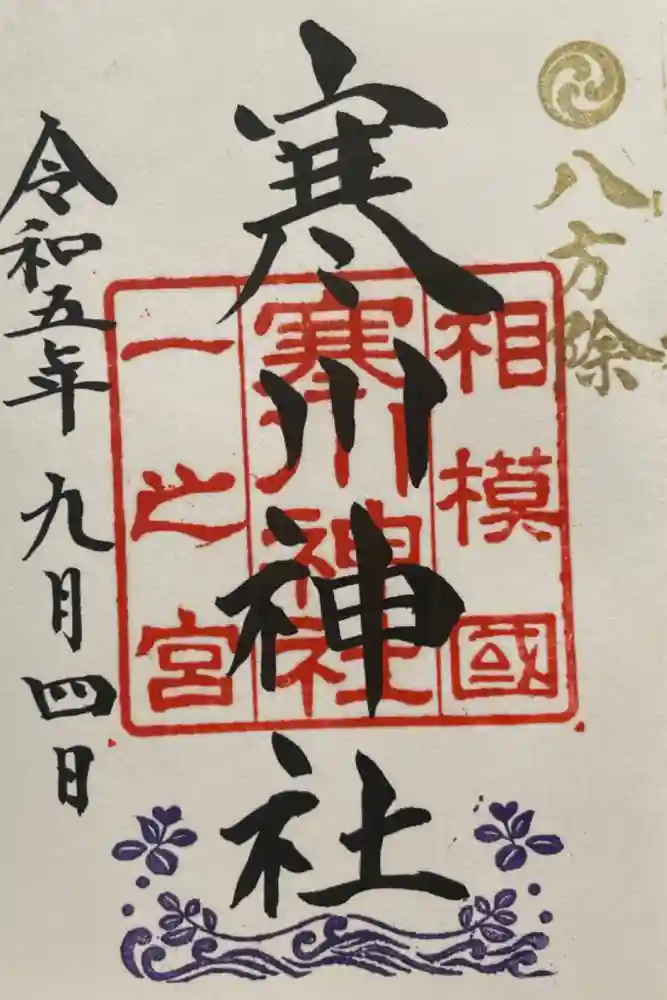 八方除
相模國
寒川神社
一之宮
寒川神社
令和五年九月四日